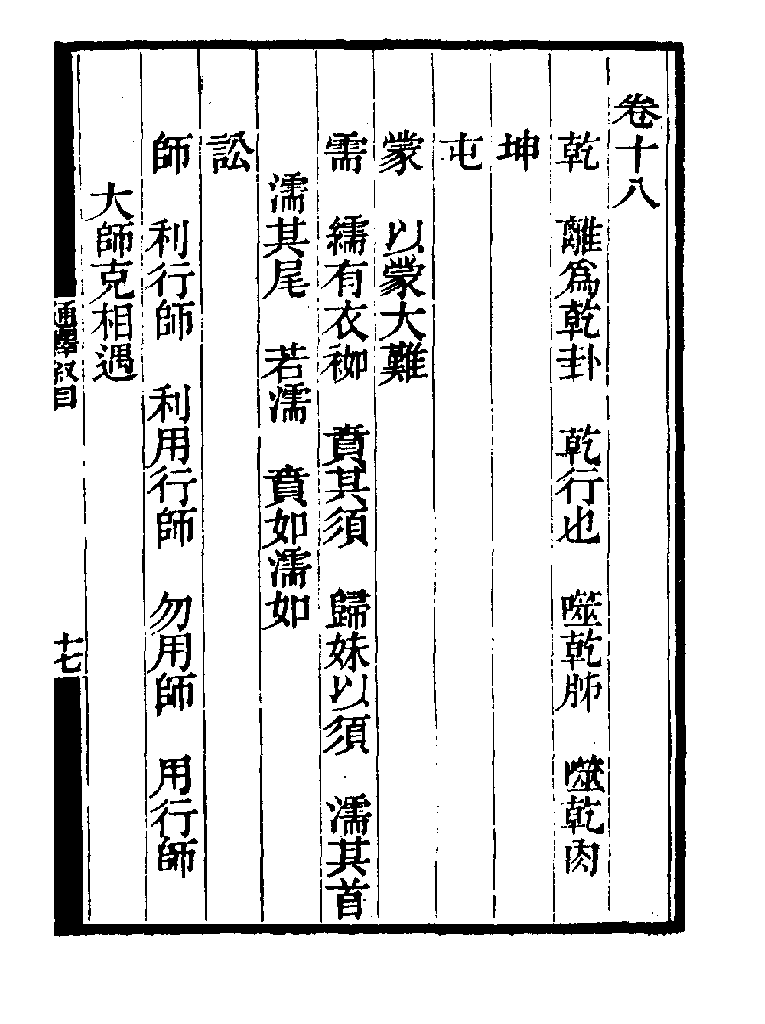 卷十八
乾　離爲乾卦　乾行也　噬乾胏　噬乾肉
坤
屯
蒙　以蒙大難
需　繻有衣袽　賁其須　歸妹以須　濡其首
濡其尾　若濡　賁如濡如
訟
師　利行師　利用行師　勿用師　用行師
大師克相遇
通釋敘目
十七